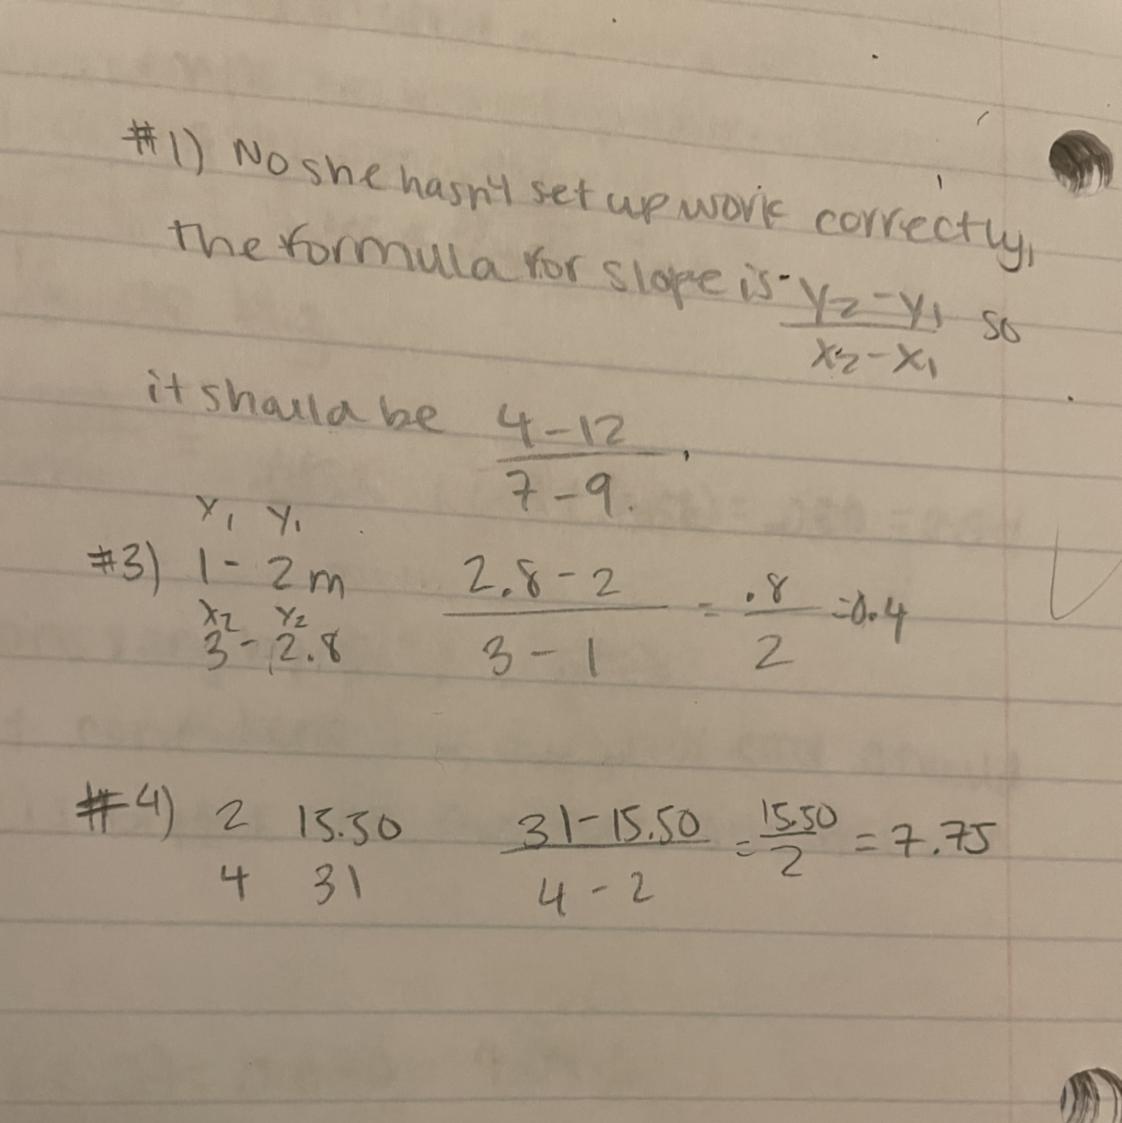 #1) No she hasn't set up work correctly,
the formula for slope is y₂-y₁/x₂-x₁ so
it shoula be 4-12/7-9.
y₁ y₁
#3) 1 - 2m 2.8-2/3-1 = .8/2 = 0.4
x₂ y₂
3 - 2.8
#4) 2 15.50 31-15.50/4-2 = 15.50/2 = 7.75
4 31